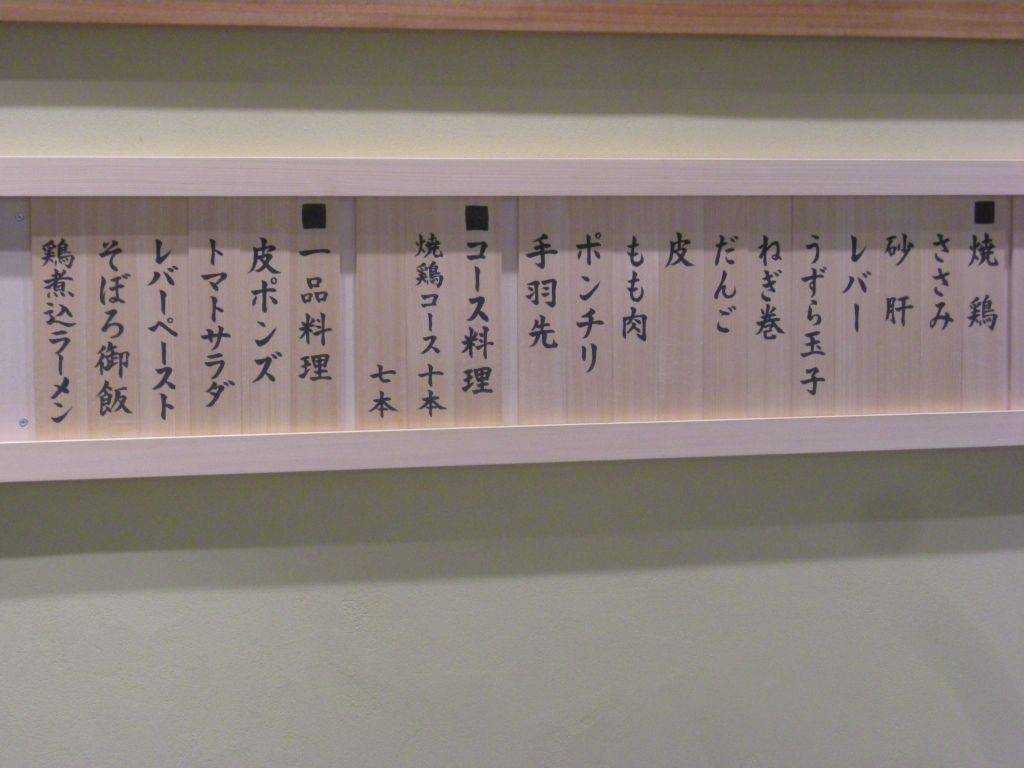 ■焼鶏
ささみ
砂肝
レバー
うずら玉子
ねぎ巻
だんご
皮
もも肉
ポンチリ
手羽先
■コース料理
焼鶏コース十本
七本
■一品料理
皮ポンズ
トマトサラダ
レバーペースト
そぼろ御飯
鶏煮込ラーメン